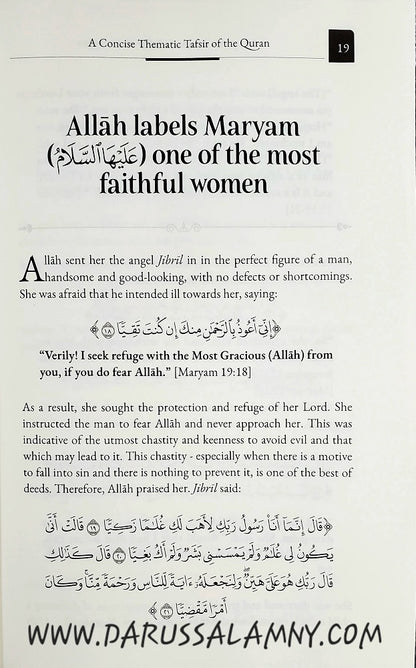 A Concise Thematic Tafsir of the Quran
19
Allāh labels Maryam
(عَلَيْهَا السَّلَامُ) one of the most
faithful women
Allāh sent her the angel Jibril in in the perfect figure of a man,
handsome and good-looking, with no defects or shortcomings.
She was afraid that he intended ill towards her, saying:
﴿إِنِّىٓ أَعُوذُ بِٱلرَّحْمَٰنِ مِنكَ إِن كُنتَ تَقِيًّا ١٨﴾
“Verily! I seek refuge with the Most Gracious (Allāh) from
you, if you do fear Allāh.” [Maryam 19:18]
As a result, she sought the protection and refuge of her Lord. She
instructed the man to fear Allāh and never approach her. This was
indicative of the utmost chastity and keenness to avoid evil and that
which may lead to it. This chastity - especially when there is a motive
to fall into sin and there is nothing to prevent it, is one of the best of
deeds. Therefore, Allāh praised her. Jibril said:
﴿قَالَ إِنَّمَآ أَنَا۠ رَسُولُ رَبِّكِ لِأَهَبَ لَكِ غُلَٰمًا زَكِيًّا ١٩ قَالَتْ أَنَّىٰ
يَكُونُ لِى غُلَٰمٌ وَلَمْ يَمْسَسْنِى بَشَرٌ وَلَمْ أَكُ بَغِيًّا ٢٠ قَالَ كَذَٰلِكِ
قَالَ رَبُّكِ هُوَ عَلَىَّ هَيِّنٌ ۖ وَلِنَجْعَلَهُۥٓ ءَايَةً لِّلنَّاسِ وَرَحْمَةً مِّنَّا ۚ وَكَانَ
أَمْرًا مَّقْضِيًّا ٢١﴾
WWW.DARUSSALAMNY.COM